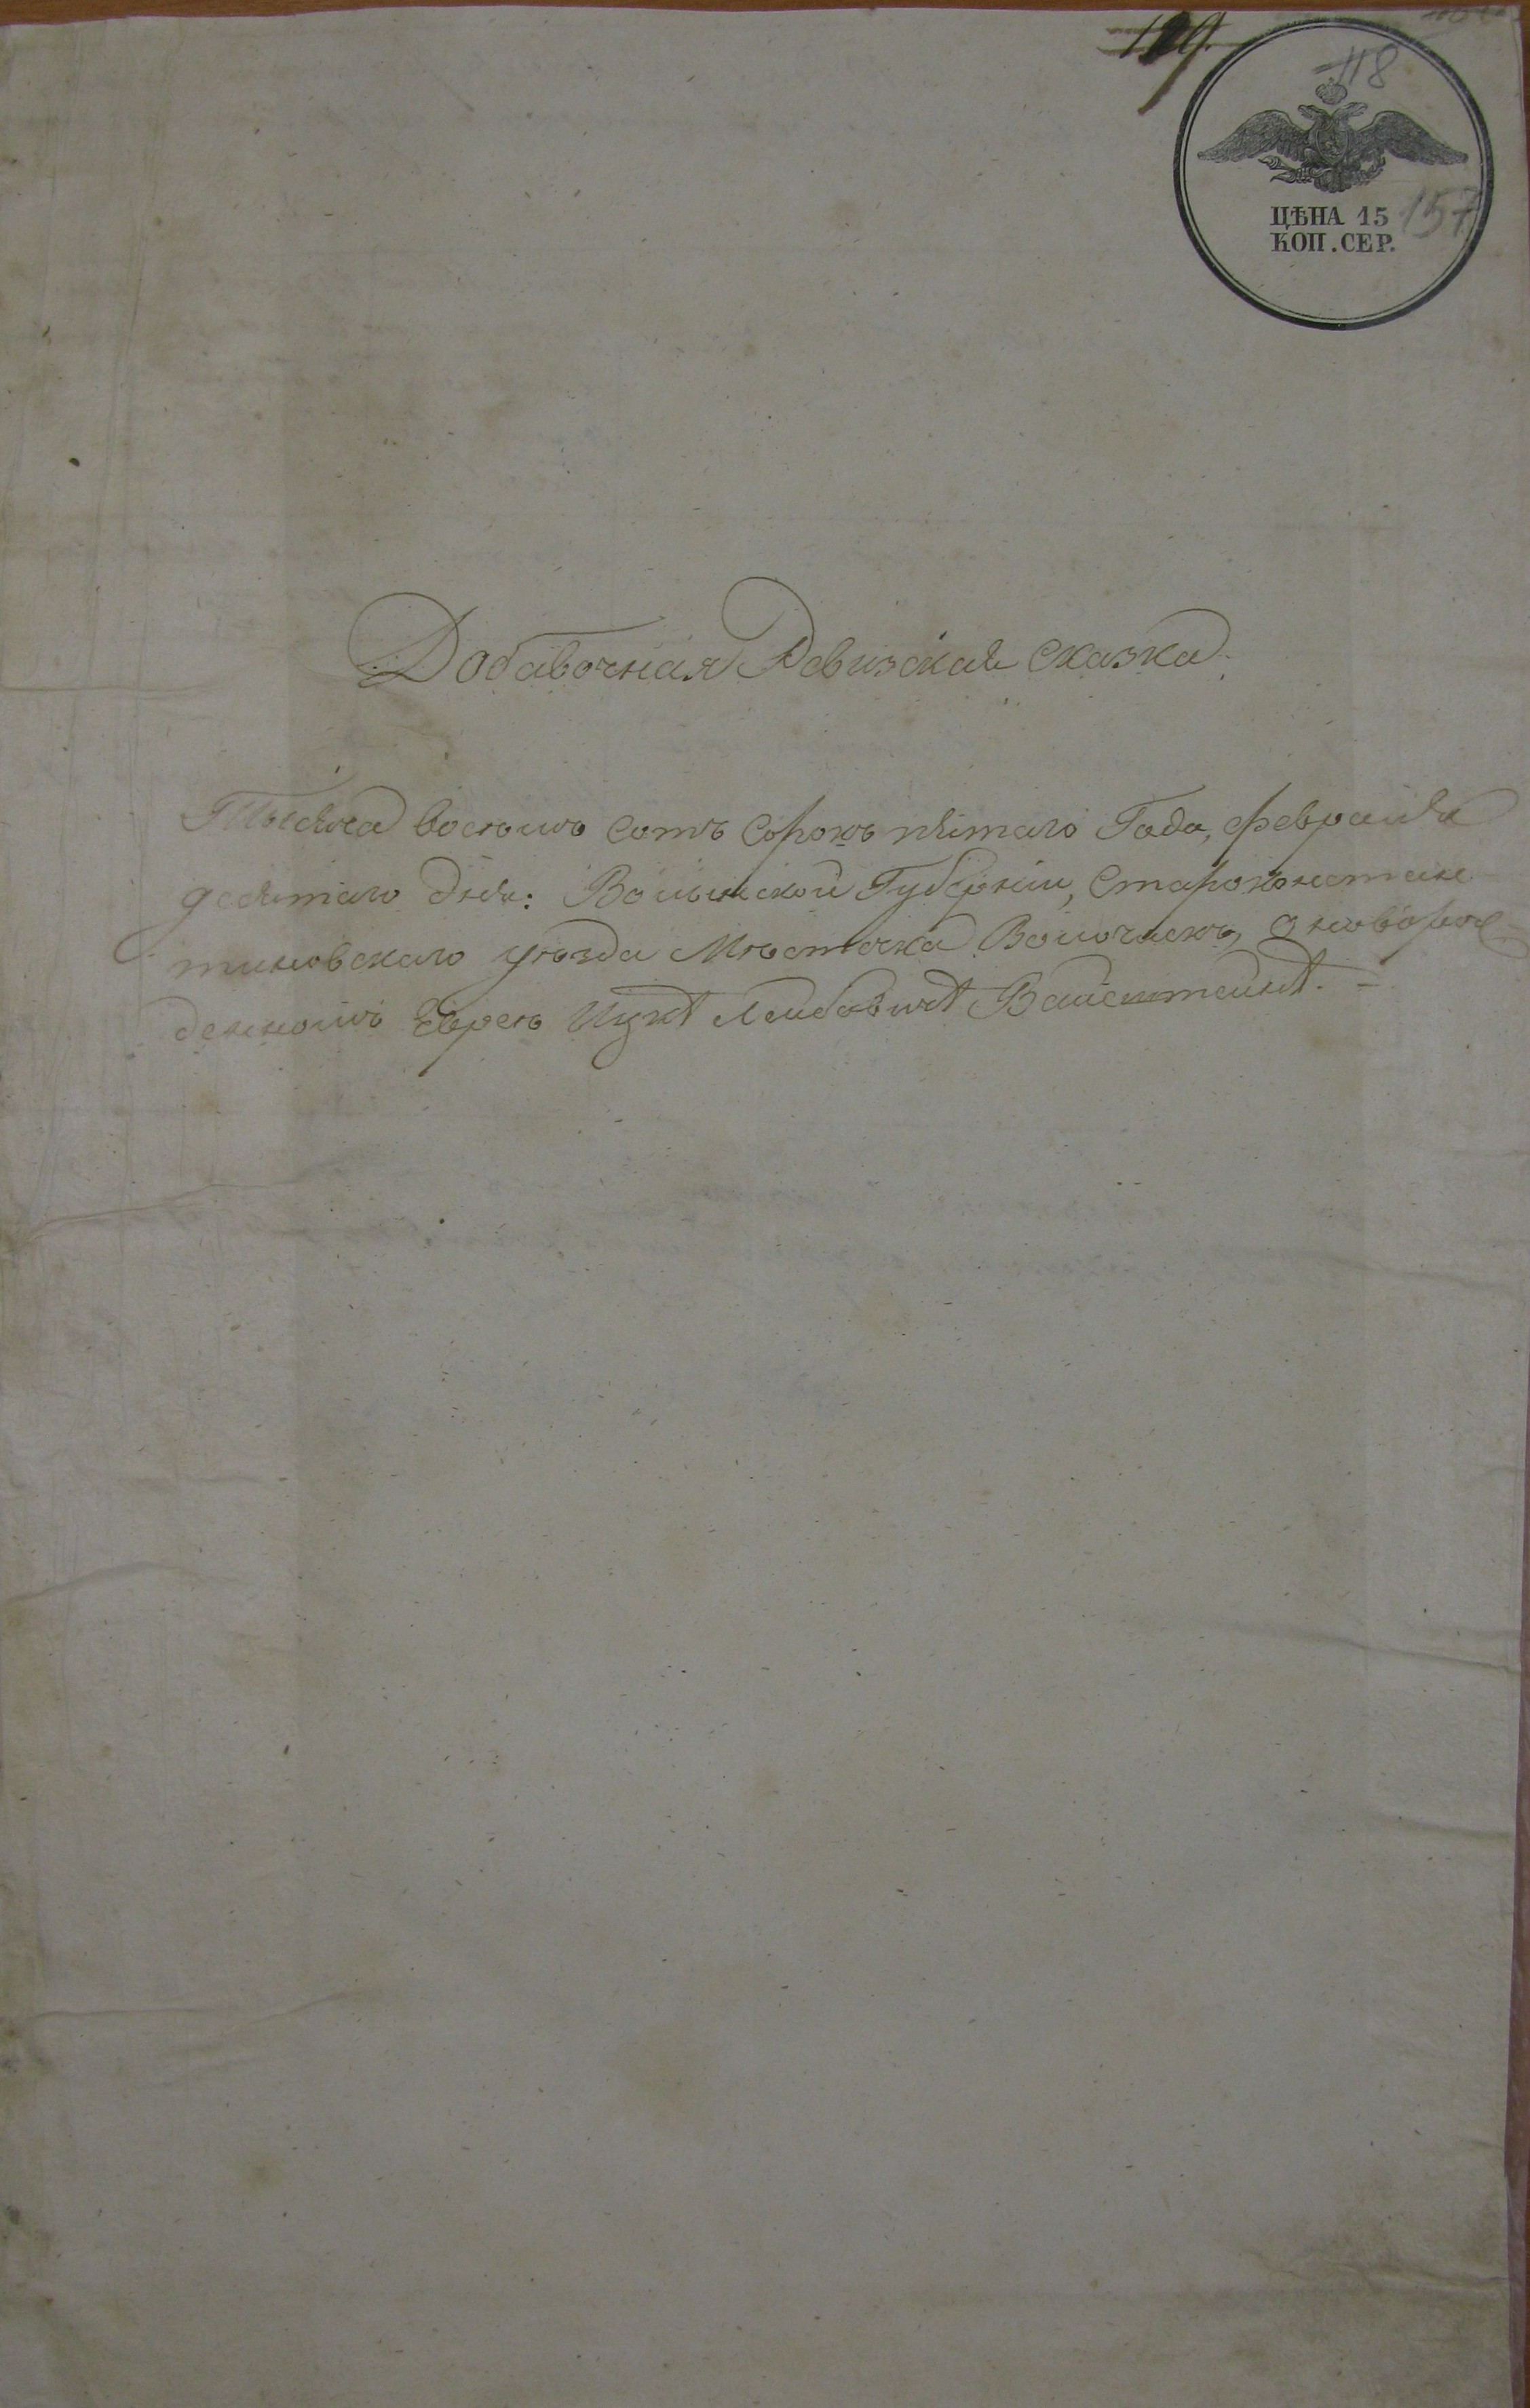 129.
118
157
ЦѢНА 15
КОП. СЕР.
Добавочная Ревизская Сказка.
Тысяча восемь сотъ сорокъ пятаго Года, февраля
десятаго дня: Волынской Губерніи, Староконстан
тиновскаго уѣзда Мѣстечка Волочискъ, о новорож
денномъ Еврею Ицкѣ Лейбовичѣ Вайсштейнѣ.